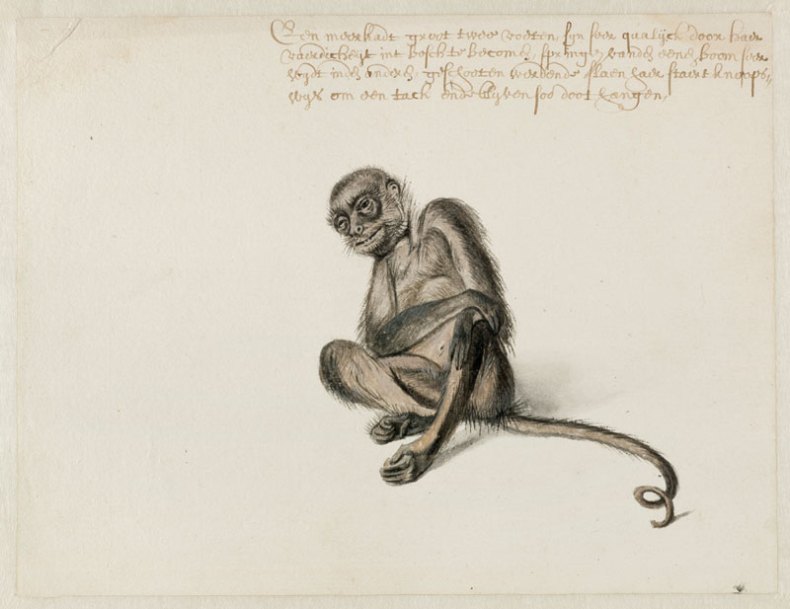 Een meerkadt groot twee voeten, syn seer qualijck door haer
vaerdicheijt int bosch te becomen, springen vanden eenen boom seer
wijdt inden anderen, geschooten werdende slaen haer staert knoops,,
wijs om een tack ende blijven soo doot hangen.